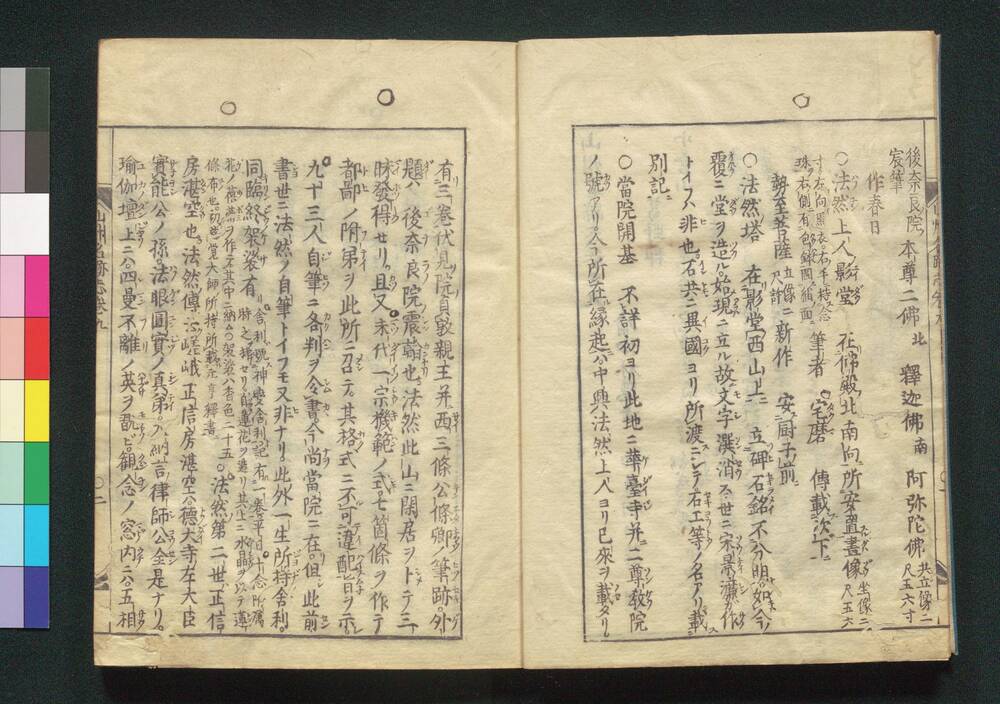 後奈良院宸筆 本尊二佛 北 釋迦佛 南 阿弥陀佛 共立像二尺五六寸
作春日
○法然上人影堂 在佛殿北南向 所安置畫像 坐像二尺五六寸左向照衣右手持念珠右側有 筆者 宅磨 傳載次下
勢至菩薩 立像尺計 新作 安厨子前
○法然塔 在影堂西山上 立碑石銘不分明如今
覆ニ堂ヲ造ル始現ニ立ル故文字漢消ス世ニ宋景濂カ作
トイフハ非也石共ニ異國ヨリ所渡ニシテ石工等ノ名アリ載
別記
○當院開基 不詳初ヨリ此地ニ華臺寺并ニ二尊教院
ノ號アリ今所在縁起ハ中興法然上人ヨリ已來ヲ載タリ
有三巻伏見院貞敦親王并西三條公條卿ノ筆跡外
題ハ後奈良院震翰也法然此山ニ閑居ヲトテ三
昧發得セリ且又末代一宗機範ノ式七箇條ヲ作テ
都鄙ノ附弟ヲ此所ニ召テ其格式ニ不可違配旨ヲ示
九十三人自筆ニ各判ヲ令書今尚當院ニ在但シ此前
書世ニ法然ノ自筆トイフモ又非ナリ此外一生所持舎利
同臨終袈裟有 舎利號神變舎利記有一巻平日十念所属
房湛空也法然傳ニ嵯峨正信房湛空ハ德大寺左大臣
實能公ノ孫法眼圓實ノ真弟ハ納言律師公全是ナリ
瑜伽壇上ニハ四曼不離ノ英ヲ翫ビ観念ノ窓内ニハ五相
山州名跡志巻九